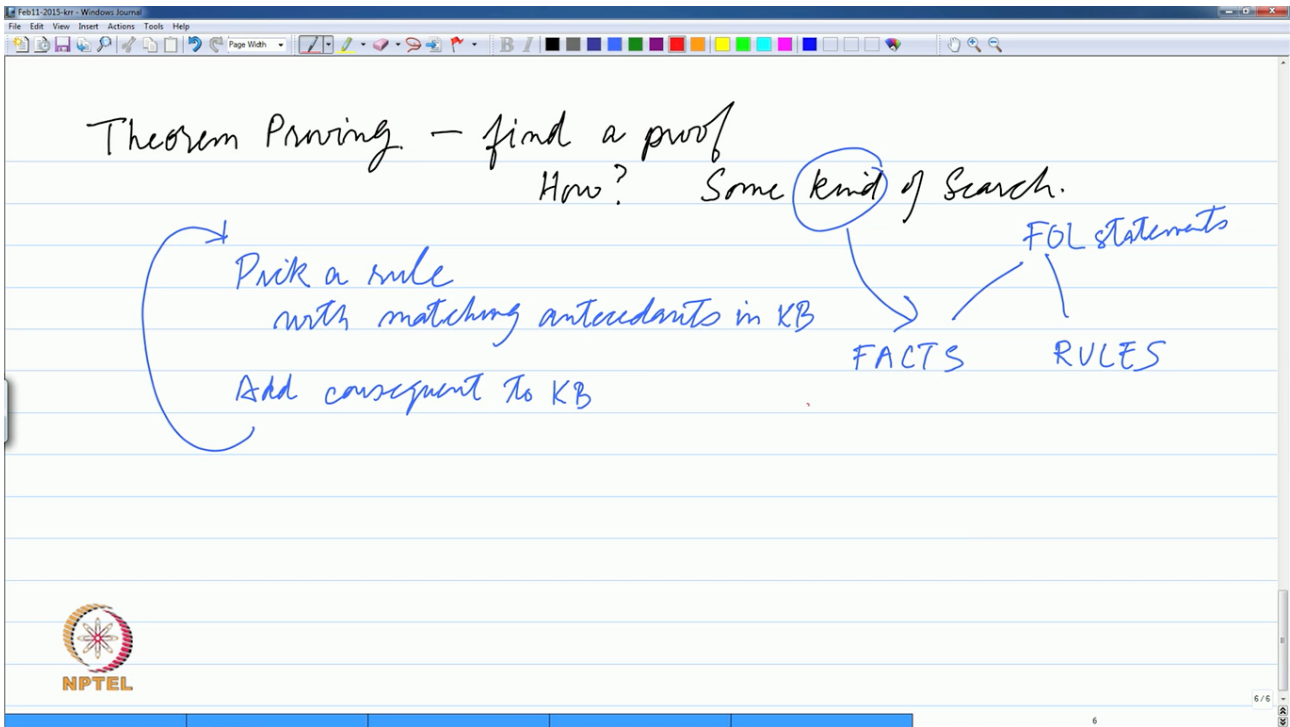 Feb11-2015-krr - Windows Journal
File Edit View Insert Actions Tools Help
Page Width
B I
Theorem Proving - find a proof
How? Some kind of Search.
FOL statements
Pick a rule
with matching antecedants in KB
FACTS RULES
Add consequent to KB
NPTEL
6/6
6